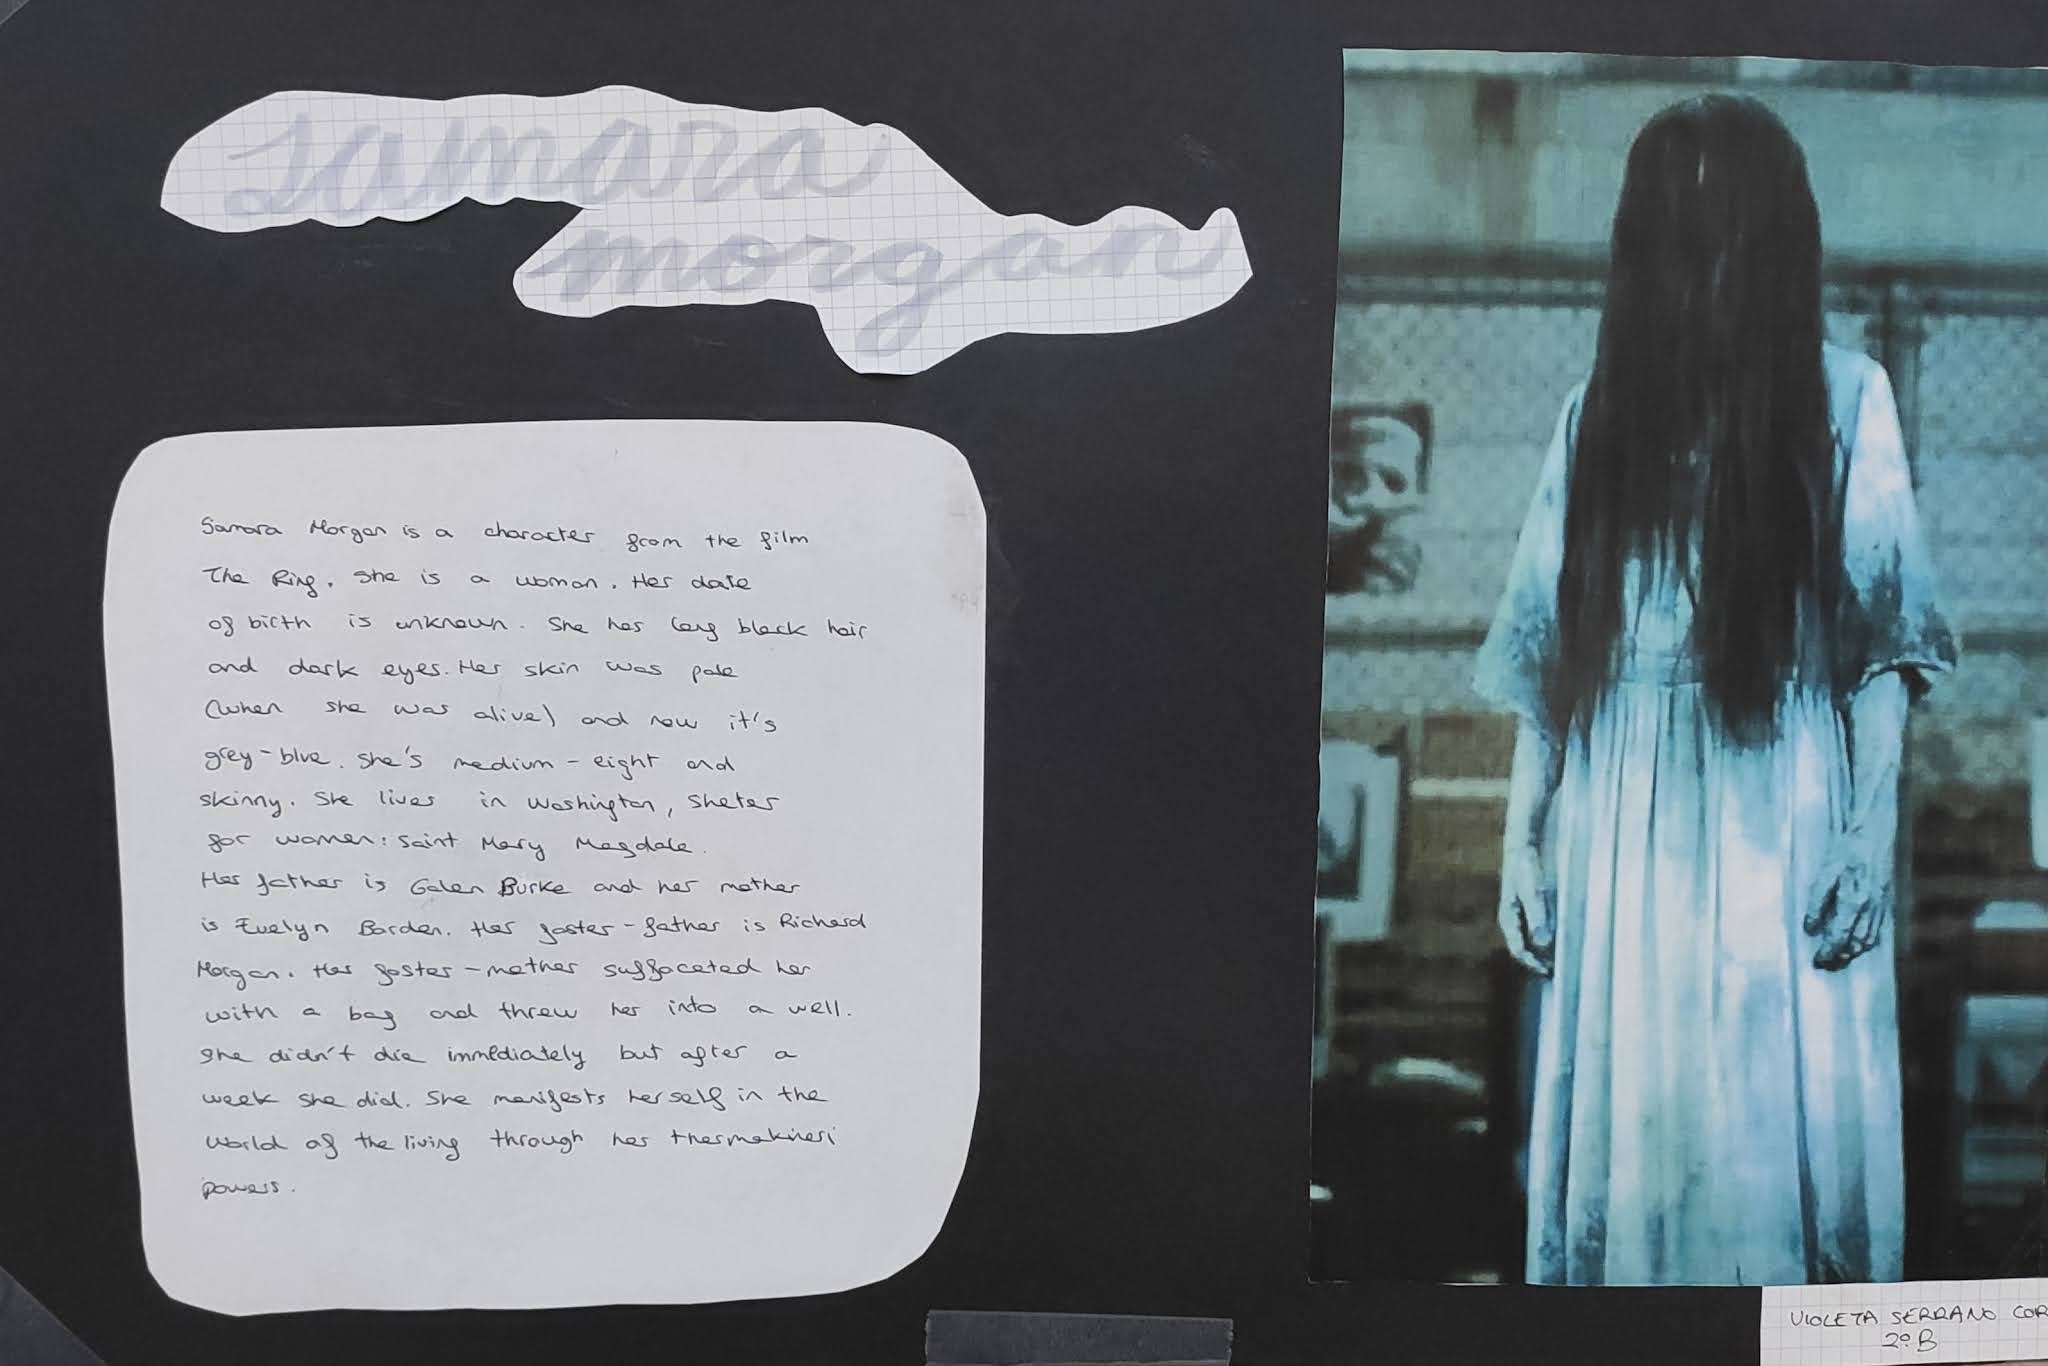 Samara
morgan
Samara Morgan is a character from the film
The Ring. She is a woman. Her date
of birth is unknown. She has long black hair
and dark eyes. Her skin was pale
(when she was alive) and now it's
grey-blue. She's medium-eight and
skinny. She lives in Washington, Sheter
for women: Saint Mary Magdale.
Her father is Galen Burke and her mother
is Evelyn Borden. Her foster-father is Richard
Morgan. Her foster-mother suffocated her
with a bag and threw her into a well.
She didn't die immediately but after a
week she did. She manifests herself in the
world of the living through her thermokinesi
powers.
VIOLETA SERRANO COR
2º B